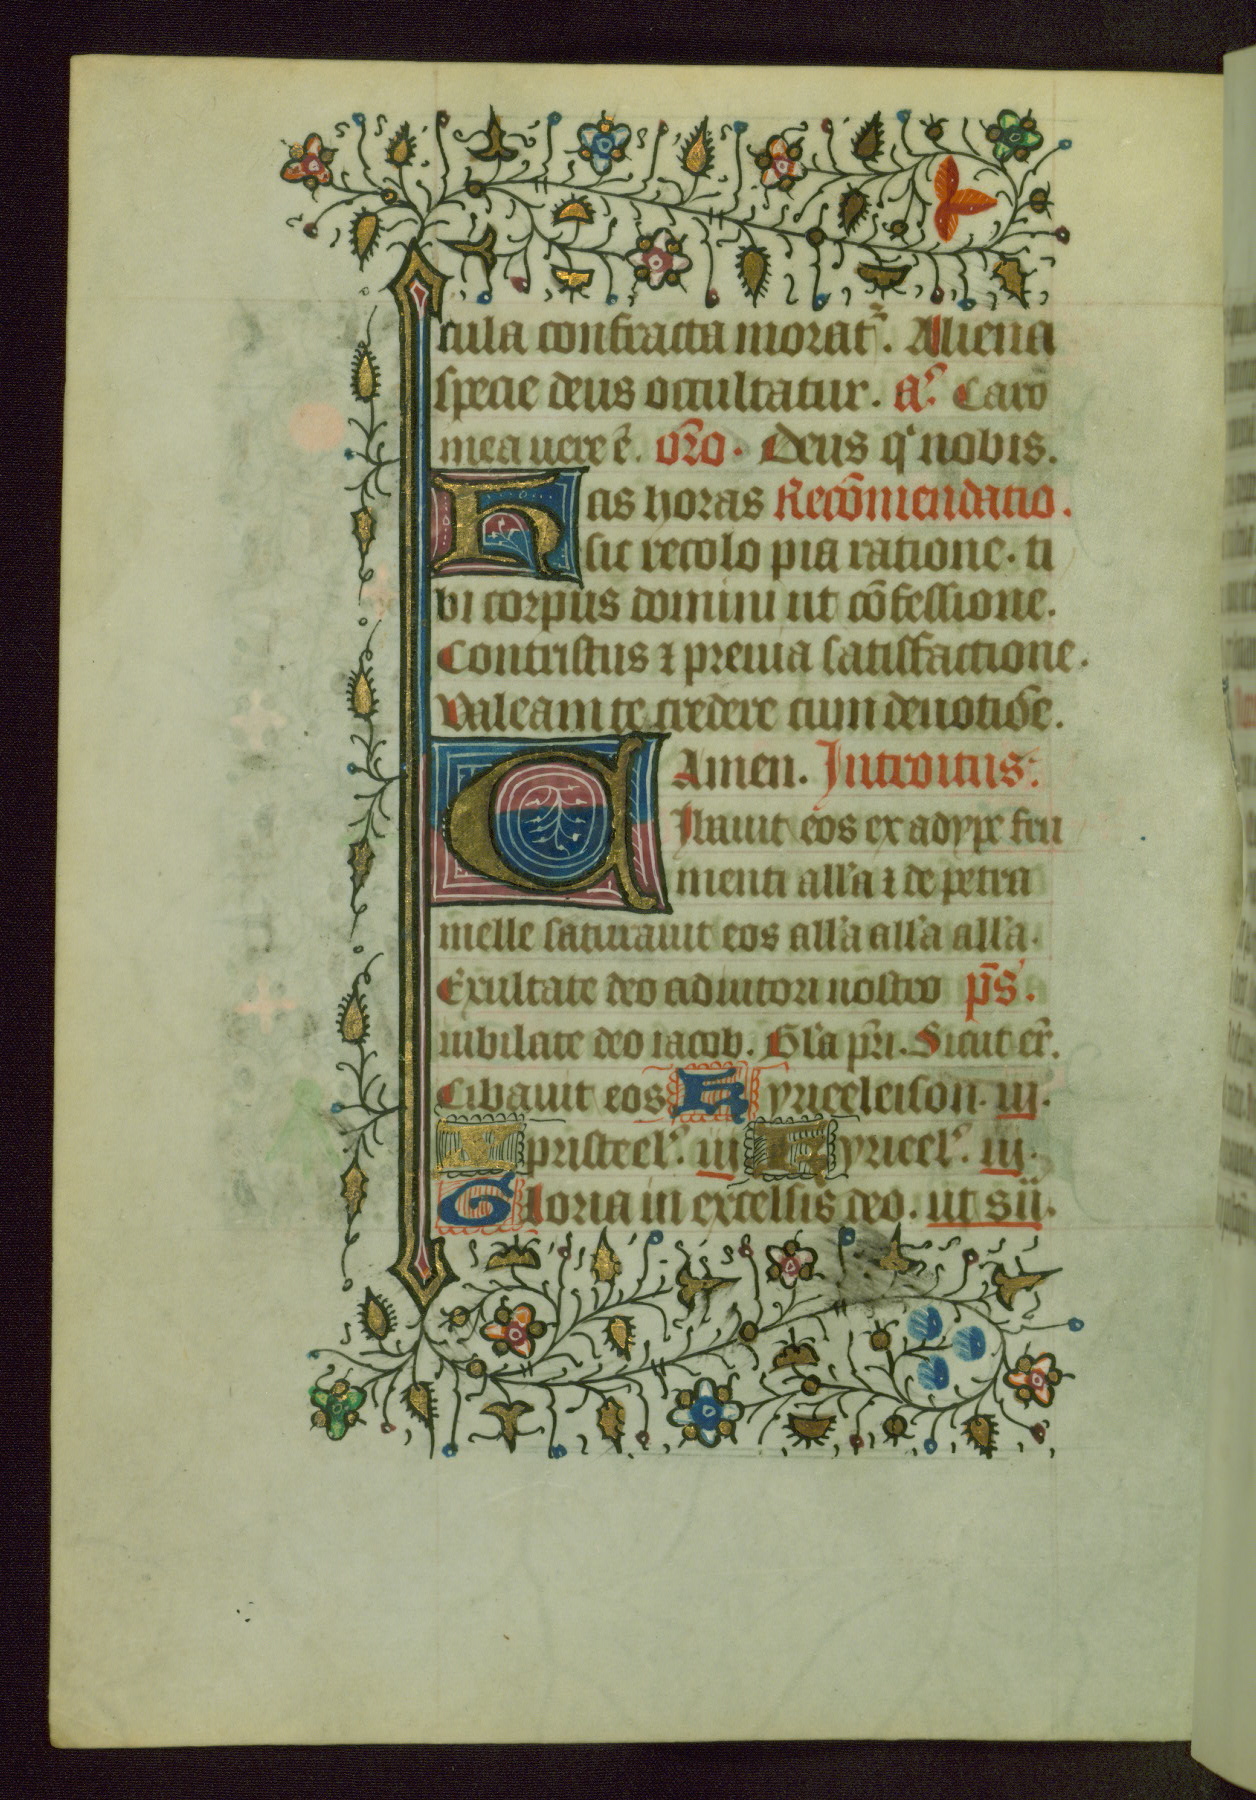 cula confracta morat᷑. Aliena
specie deus occultatur. a᷑. Caro
mea uere ē. or̄o. Deus q nobis.
Has horas Recōmendatio.
sic recolo pia ratione. ti
bi corpus domini ut cōfessione.
Contristus ⁊ preuia satisfactione.
Valeam te credere cum deuotiōe.
Amen. Introitus:
Cibauit eos ex adype fru
menti all'a ⁊ de petra
melle saturauit eos all'a all'a all'a.
Exultate deo adiutori nostro p̄s.
iubilate deo iacob. Gl'a pr̄i. Sicut er̄.
Cibauit eos Kyrieeleison. iij.
Xpristeel'. iij Kyrieel'. iij.
Gloria in excelsis deo. ut s